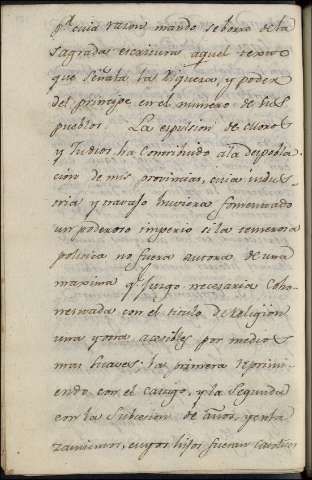 pr. cuia razon mando se borre de la
Sagradas escrituras aquel texto
que señala las riquezas, y poder
del principe en el numero de sus
pueblos. La espulsion de Moros
y Judios ha Contribuido ala despobla
cion de mis provincias, cuia indus=
tria y travajo huviera fomentado
un poderoso imperio si la temerosa
politica no fuera autora de una
maxima qe. juzgo necesaria Coho-
nestada con el titulo de Religion
una y otra acesibles por medios
mas suaves: la primera reprimi
endo con el castigo, y la Segunda
con la Subcesion de años, y enla
zamientos, cuyos hijos fueran Catolicos